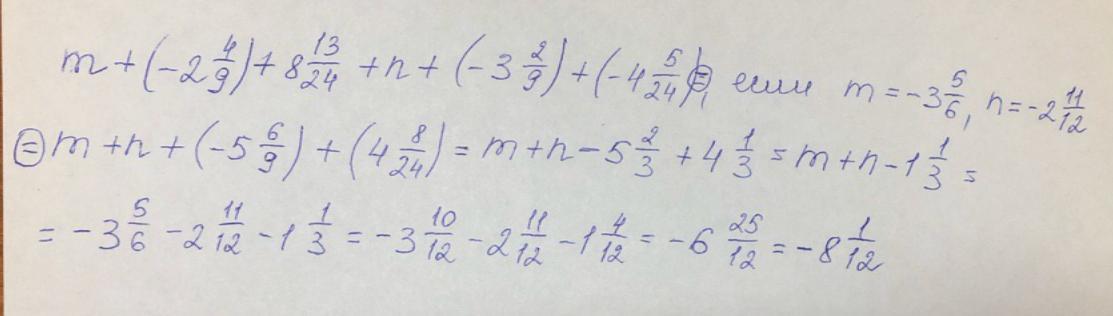 m + (-2 4/9) + 8 13/24 + n + (-3 2/9) + (-4 5/24) ⊜, если m = -3 5/6, n = -2 11/12
⊜ m + n + (-5 6/9) + (4 8/24) = m + n - 5 2/3 + 4 1/3 = m + n - 1 1/3 =
= -3 5/6 - 2 11/12 - 1 1/3 = -3 10/12 - 2 11/12 - 1 4/12 = -6 25/12 = -8 1/12